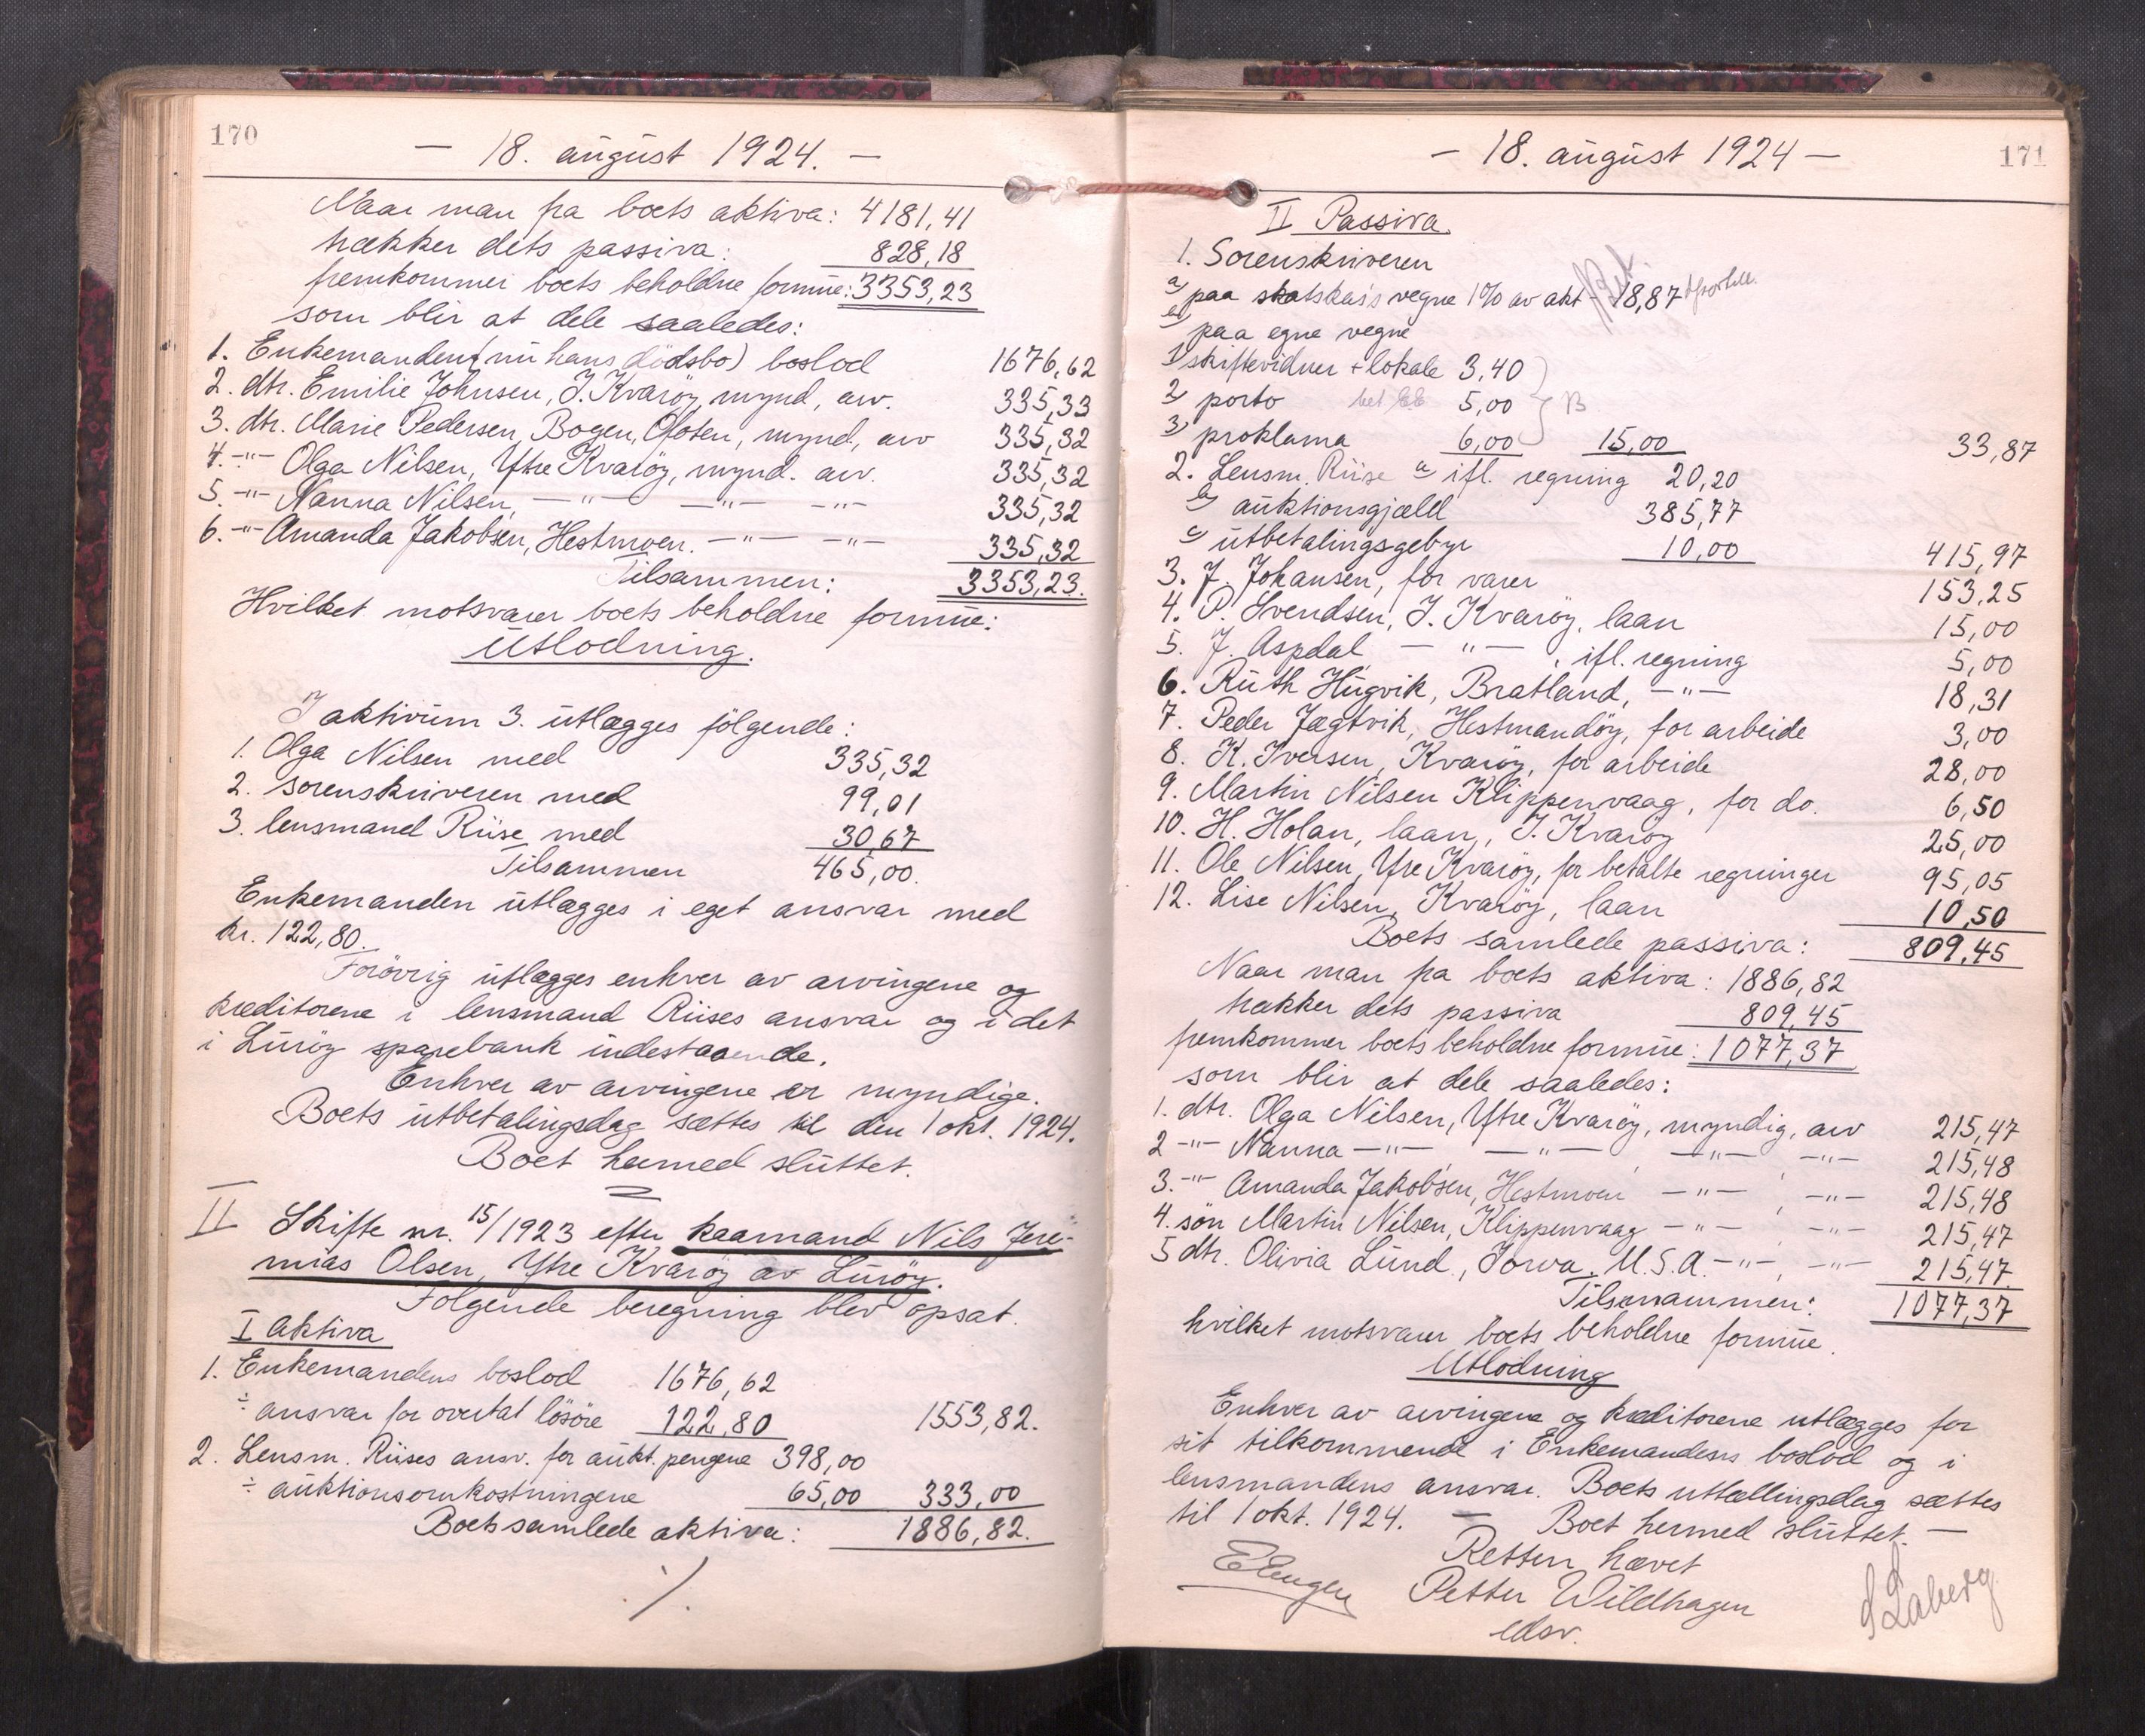 170
— 18. august 1924. —
Naar man fra boets aktiva: 4181,41
trækker dets passiva: 828,18
fremkommer boets beholdne formue: 3353,23
som blir at dele saaledes:
1. Enkemanden (nu hans dödsbo) boslod 1676,62
2. dtr. Emilie Johnsen, I. Kvaröy, mynd, arv. 335,33
3. dtr. Marie Pedersen, Bogen, Ofoten, mynd, arv 335,32
4. -"- Olga Nilsen, Ytre Kvaröy, mynd. arv. 335,32
5. -"- Nanna Nilsen, -"- -"- -"- 335,32
6. -"- Amanda Jakobsen, Hestmoen. -"- -"- 335,32
Tilsammen: 3353,23.
Hvilket motsvarer boets beholdne formue:
Utlodning.
I aktivum 3. utlægges følgende:
1. Olga Nilsen med 335,32
2. sorenskriveren med 99,01
3. lensmand Riise med 30,67
Tilsammen 465,00.
Enkemanden utlægges i eget ansvar med
kr. 122,80.
Forövrig utlægges enhver av arvingene og
kreditorene i lensmand Riises ansvar og i det
i Luröy sparebank indestaaende.
Enhver av arvingene er myndige.
Boets utbetalingsdag sættes til den 1 okt. 1924.
Boet hermed sluttet.
II Skifte nr. 15/1923 efter kaarmand Nils Jere-
mias Olsen, Ytre Kvaröy av Luröy.
Følgende beregning blev opsat.
I Aktiva
1. Enkemandens boslod 1676,62
÷ ansvar for overtat lösöre 122,80 1553,82.
2. Lensm. Riises ansv. for aukt. pengene 398,00
÷ auktionsomkostningene 65,00 333,00
Boets samlede aktiva: 1886,82.
./.
171
— 18. august 1924 —
II Passiva.
1. Sorenskriveren
a) paa statskas's vegne 1% av akt - 18,87
b) paa egne vegne
1) skiftevidner + lokale 3,40
2) porto 5,00 } B
3) proklama 6,00 15,00 33,87
2. Lensm. Riise a) ifl. regning 20,20
b) auktionsgjæld 385,77
c) utbetalingsgebyr 10,00 415,97
3. J. Johansen, for varer 153,25
4. P. Svendsen, I. Kvaröy, laan 15,00
5. J. Aspdal -"- , ifl. regning 5,00
6. Ruth Hugvik, Bratland, -"- 18,31
7. Peder Jægtvik, Hestmandöy, for arbeide 3,00
8. K. Iversen, Kvaröy, for arbeide 28,00
9. Martin Nilsen Klippenvaag, for do. 6,50
10. H. Holan, laan, I. Kvaröy 25,00
11. Ole Nilsen, Ytre Kvaröy, for betalte regninger 95,05
12. Lise Nilsen, Kvaröy, laan 10,50
Boets samlede passiva: 809,45
Naar man fra boets aktiva: 1886,82
trækker dets passiva 809,45
fremkommer boets beholdne formue: 1077,37
som blir at dele saaledes:
1. dtr. Olga Nilsen, Ytre Kvaröy, myndig, arv 215,47
2 -"- Nanna -"- -"- , -"- -"- 215,48
3. -"- Amanda Jakobsen, Hestmoen -"- , -"- 215,48
4. sön Martin Nilsen, Klippenvaag -"- , -"- 215,47
5 dtr. Olivia Lund, Iowa. U.S.A. -"-, -"- 215,47
Tilsammen: 1077,37
hvilket motsvarer boets beholdne formue.
Utlodning
Enhver av arvingene og kreditorene utlægges for
sit tilkommende i Enkemandens boslod og i
lensmandens ansvar. Boets utbetalingsdag sættes
til 1 okt. 1924. — Boet hermed sluttet. —
Retten hævet
Petter Wildhagen
edsv.